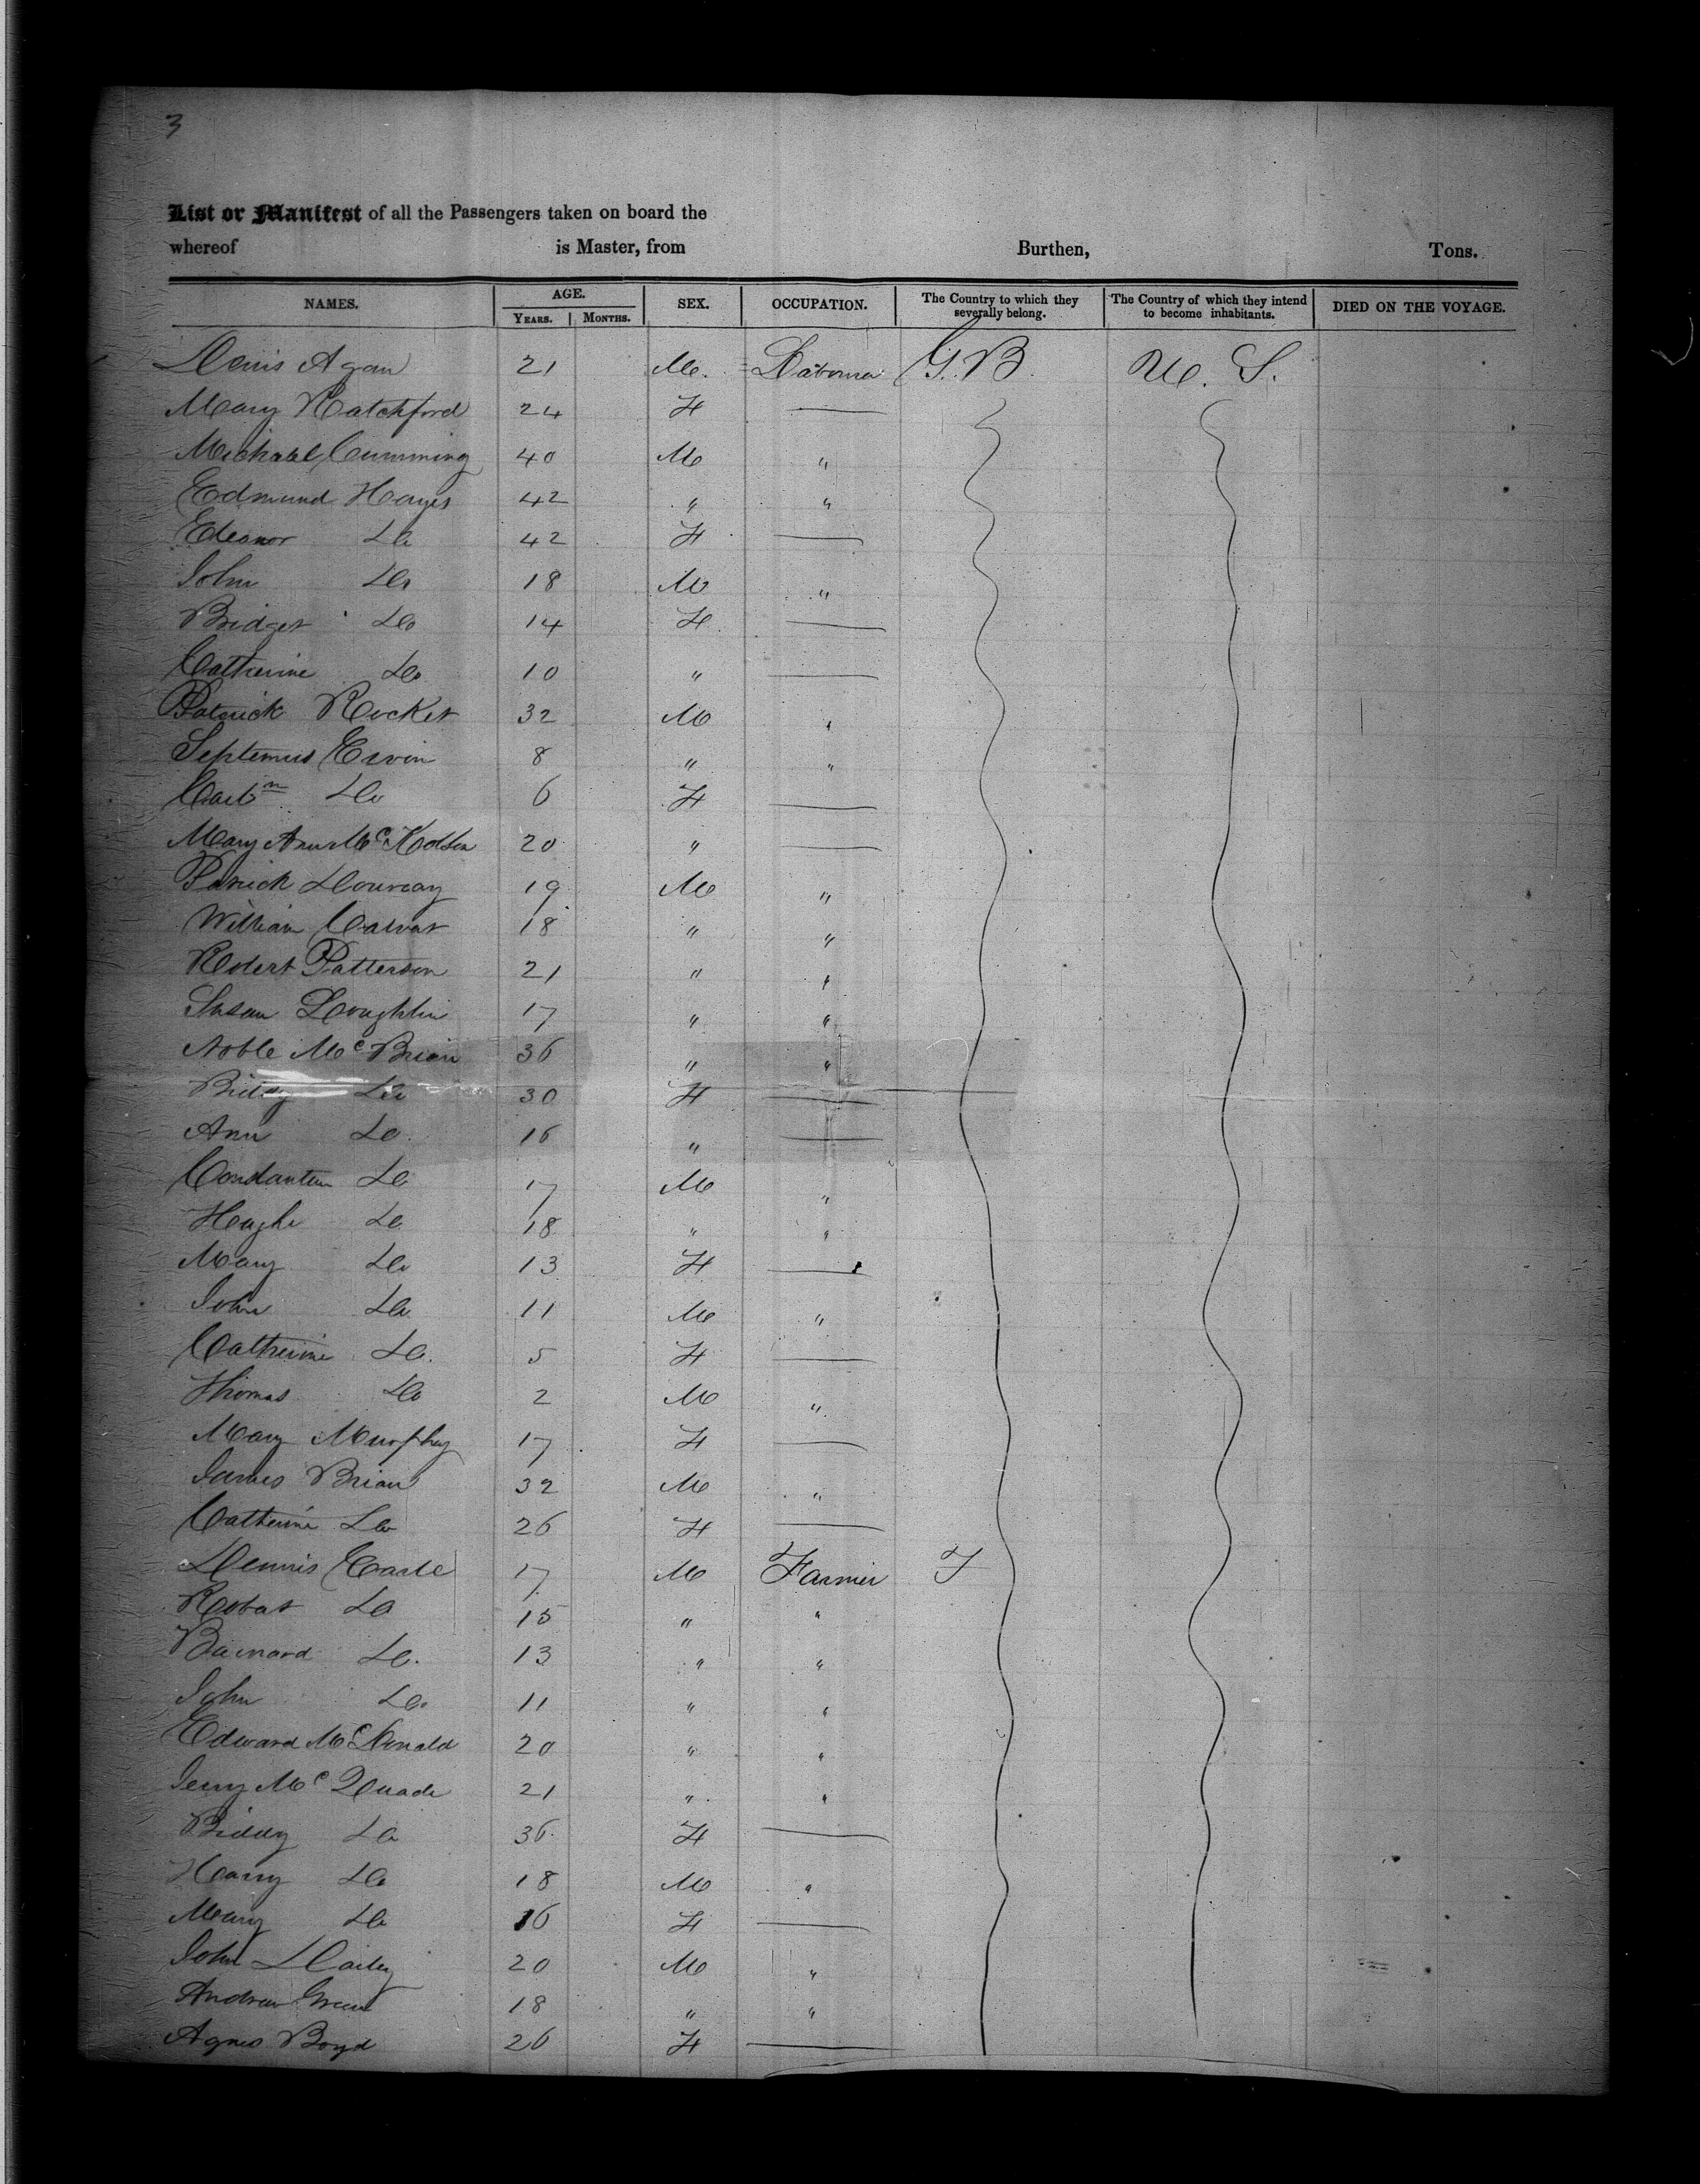 3
List or Manifest of all the Passengers taken on board the
whereof is Master, from Burthen, Tons.
NAMES. AGE. SEX. OCCUPATION. The Country to which they severally belong. The Country of which they intend to become inhabitants. DIED ON THE VOYAGE.
YEARS. MONTHS.
Denis Agan 21 M. Labourer G.B. U. S.
Mary Ratchford 24 F —
Michael Cumming 40 M "
Edmund Hayes 42 " "
Eleanor Do 42 F —
John Do 18 M "
Bridget Do 14 F —
Catherine Do 10 " —
Patrick Rocket 32 M "
Septemus Ervin 8 " "
Do 6 F —
Mary Ann 20 " —
Patrick 19 M "
William Calvat 18 " "
Robert Patterson 21 " "
Susan Loughlin 17 " "
Noble McBrian 36 " "
Biddy Do 30 F —
Ann Do 16 " —
Constantin Do 17 M "
Hugh Do 18 " "
Mary Do 13 F —
John Do 11 M "
Catherine Do. 5 F —
Thomas Do 2 M "
Mary Murphy 17 F —
James Brian 32 M "
Catherine Do 26 F —
Dennis Earle 17 M Farmier
Robat Do 15 " "
Barnard Do. 13 " "
John Do. 11 " "
Edward McDonald 20 " "
Jerry McQuade 21 " "
Biddy Do 36 F —
Harry Do 18 M "
Mary Do 16 F —
John Dailey 20 M "
Andrew Green 18 " "
Agnes Boyd 26 F —